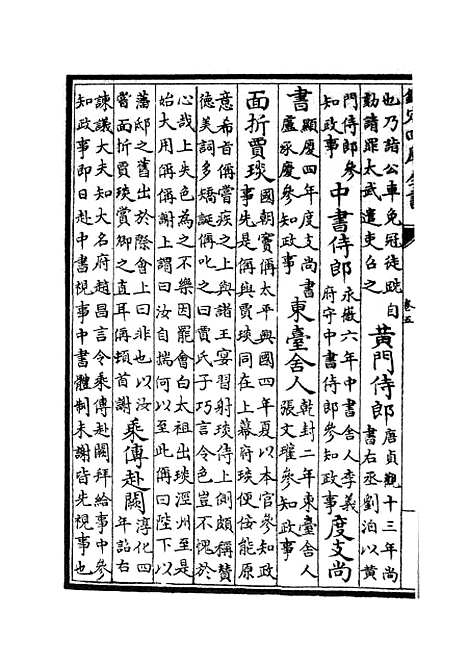 欽定四庫全書
卷五
也乃詣公車免冠徒跣自
劾請罪太武遣吏召之
黄門侍郎
唐貞觀十三年尚
書右丞劉洎以黄
門侍郎參
知政事
中書侍郎
永徽六年中書舍人李義
府守中書侍郎參知政事
度支尚
書
顯慶四年度支尚書
盧承慶參知政事
東臺舍人
乾封二年東臺舍人
張文瓘參知政事
面折賈琰
國朝竇偁太平興國四年夏以本官參知政
事先是偁與賈琰同在上幕府琰便佞能原
意希首偁嘗疾之上與諸王宴習射琰侍上側頗稱賛
德美詞多矯誕偁叱之曰賈氏子巧言令色豈不愧於
心哉上失色為之不樂因罷會白太祖出琰涇州至是
始大用偁偁謝上謂曰汝自揣何以至此偁曰陛下以
藩邸之舊出於際會上曰非也以汝
嘗面折賈琰賞卿之直耳偁頓首謝
乘傳赴闕
淳化四
年詔右
諫議大夫知大名府趙昌言令乘傳赴闕拜給事中參
知政事即日赴中書視事中書體制未謝皆先視事也